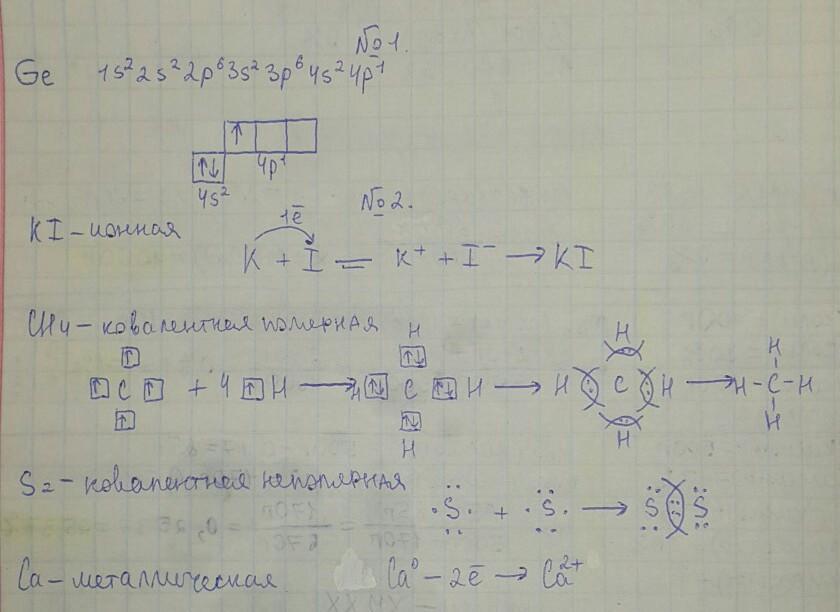 №1.
Ge 1s²2s²2p⁶3s²3p⁶4s²4p¹
↑
↑↓ 4p¹
4s²
№2.
KI – ионная
1ē
K + I = K⁺ + I⁻ → KI
CH₄ – ковалентная полярная
H H H
↑ ↑↓
↑ C ↑ + 4 ↑ H → H ↑↓ C ↑↓ H → H : C : H → H–C–H
↑ ↑↓
H H H
S₂ – ковалентная неполярная
·S· + ·S· → S :: S
Ca – металлическая Ca⁰ – 2ē → Ca²⁺